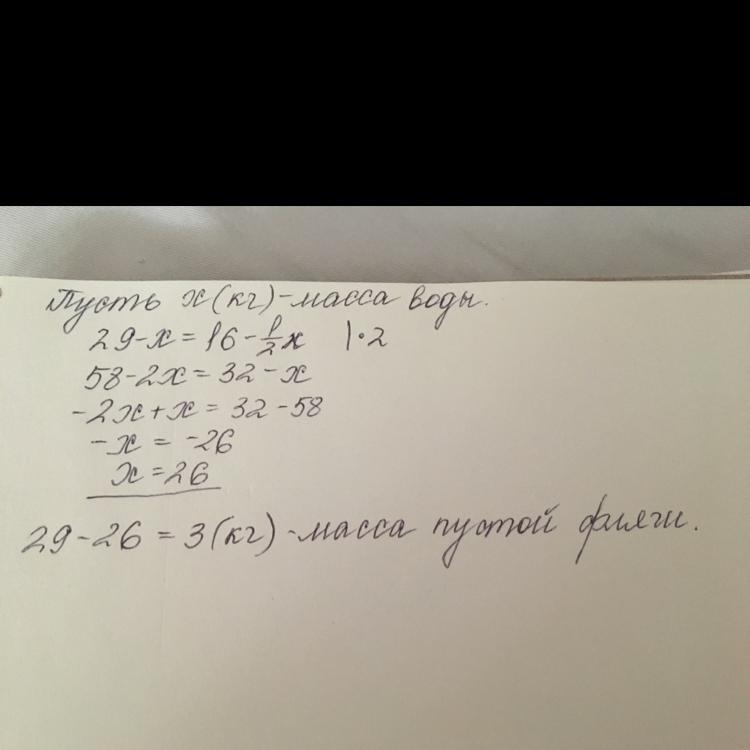 Пусть x (кг) - масса воды.
29 - x = 16 - 1/2 x | · 2
58 - 2x = 32 - x
-2x + x = 32 - 58
-x = -26
x = 26
29 - 26 = 3 (кг) - масса пустой фляги.